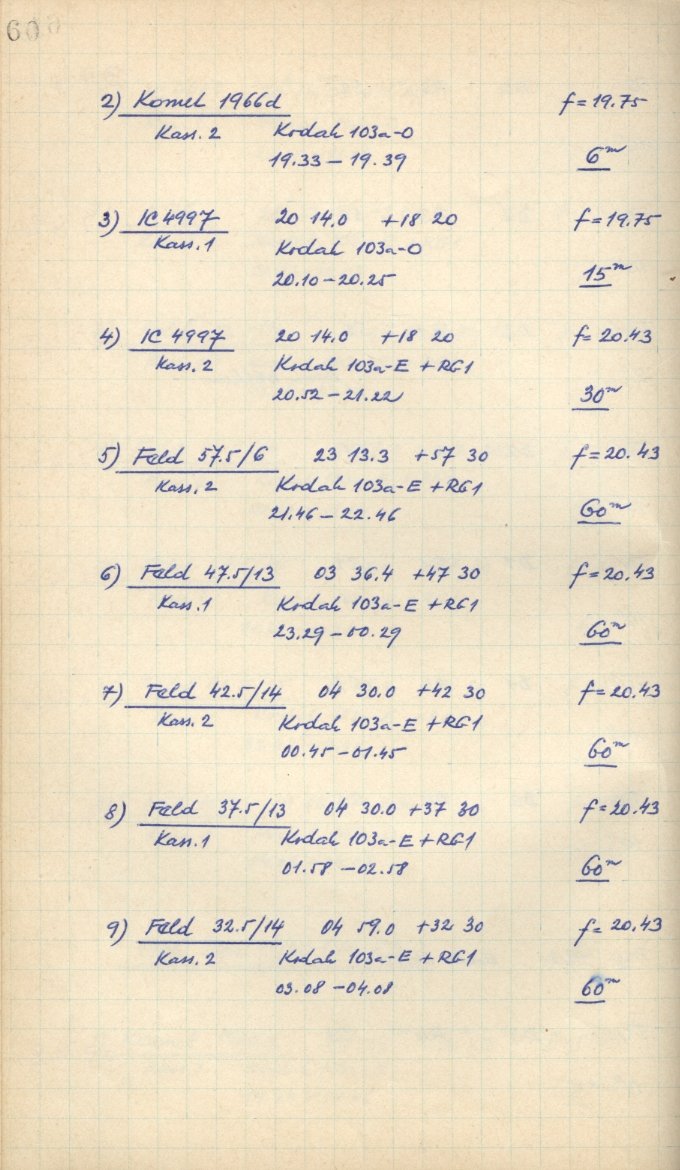 60
2) Komet 1966d f = 19.75
Kass. 2 Kodak 103a-O
19.33 – 19.39 6m
3) IC 4997 20 14.0 +18 20 f = 19.75
Kass. 1 Kodak 103a-O
20.10 – 20.25 15m
4) IC 4997 20 14.0 +18 20 f = 20.43
Kass. 2 Kodak 103a-E + RG1
20.52 – 21.22 30m
5) Feld 57.5/6 23 13.3 +57 30 f = 20.43
Kass. 2 Kodak 103a-E + RG1
21.46 – 22.46 60m
6) Feld 47.5/13 03 36.4 +47 30 f = 20.43
Kass. 1 Kodak 103a-E + RG1
23.29 – 00.29 60m
7) Feld 42.5/14 04 30.0 +42 30 f = 20.43
Kass. 2 Kodak 103a-E + RG1
00.45 – 01.45 60m
8) Feld 37.5/13 04 30.0 +37 30 f = 20.43
Kass. 1 Kodak 103a-E + RG1
01.58 – 02.58 60m
9) Feld 32.5/14 04 59.0 +32 30 f = 20.43
Kass. 2 Kodak 103a-E + RG1
03.08 – 04.08 60m